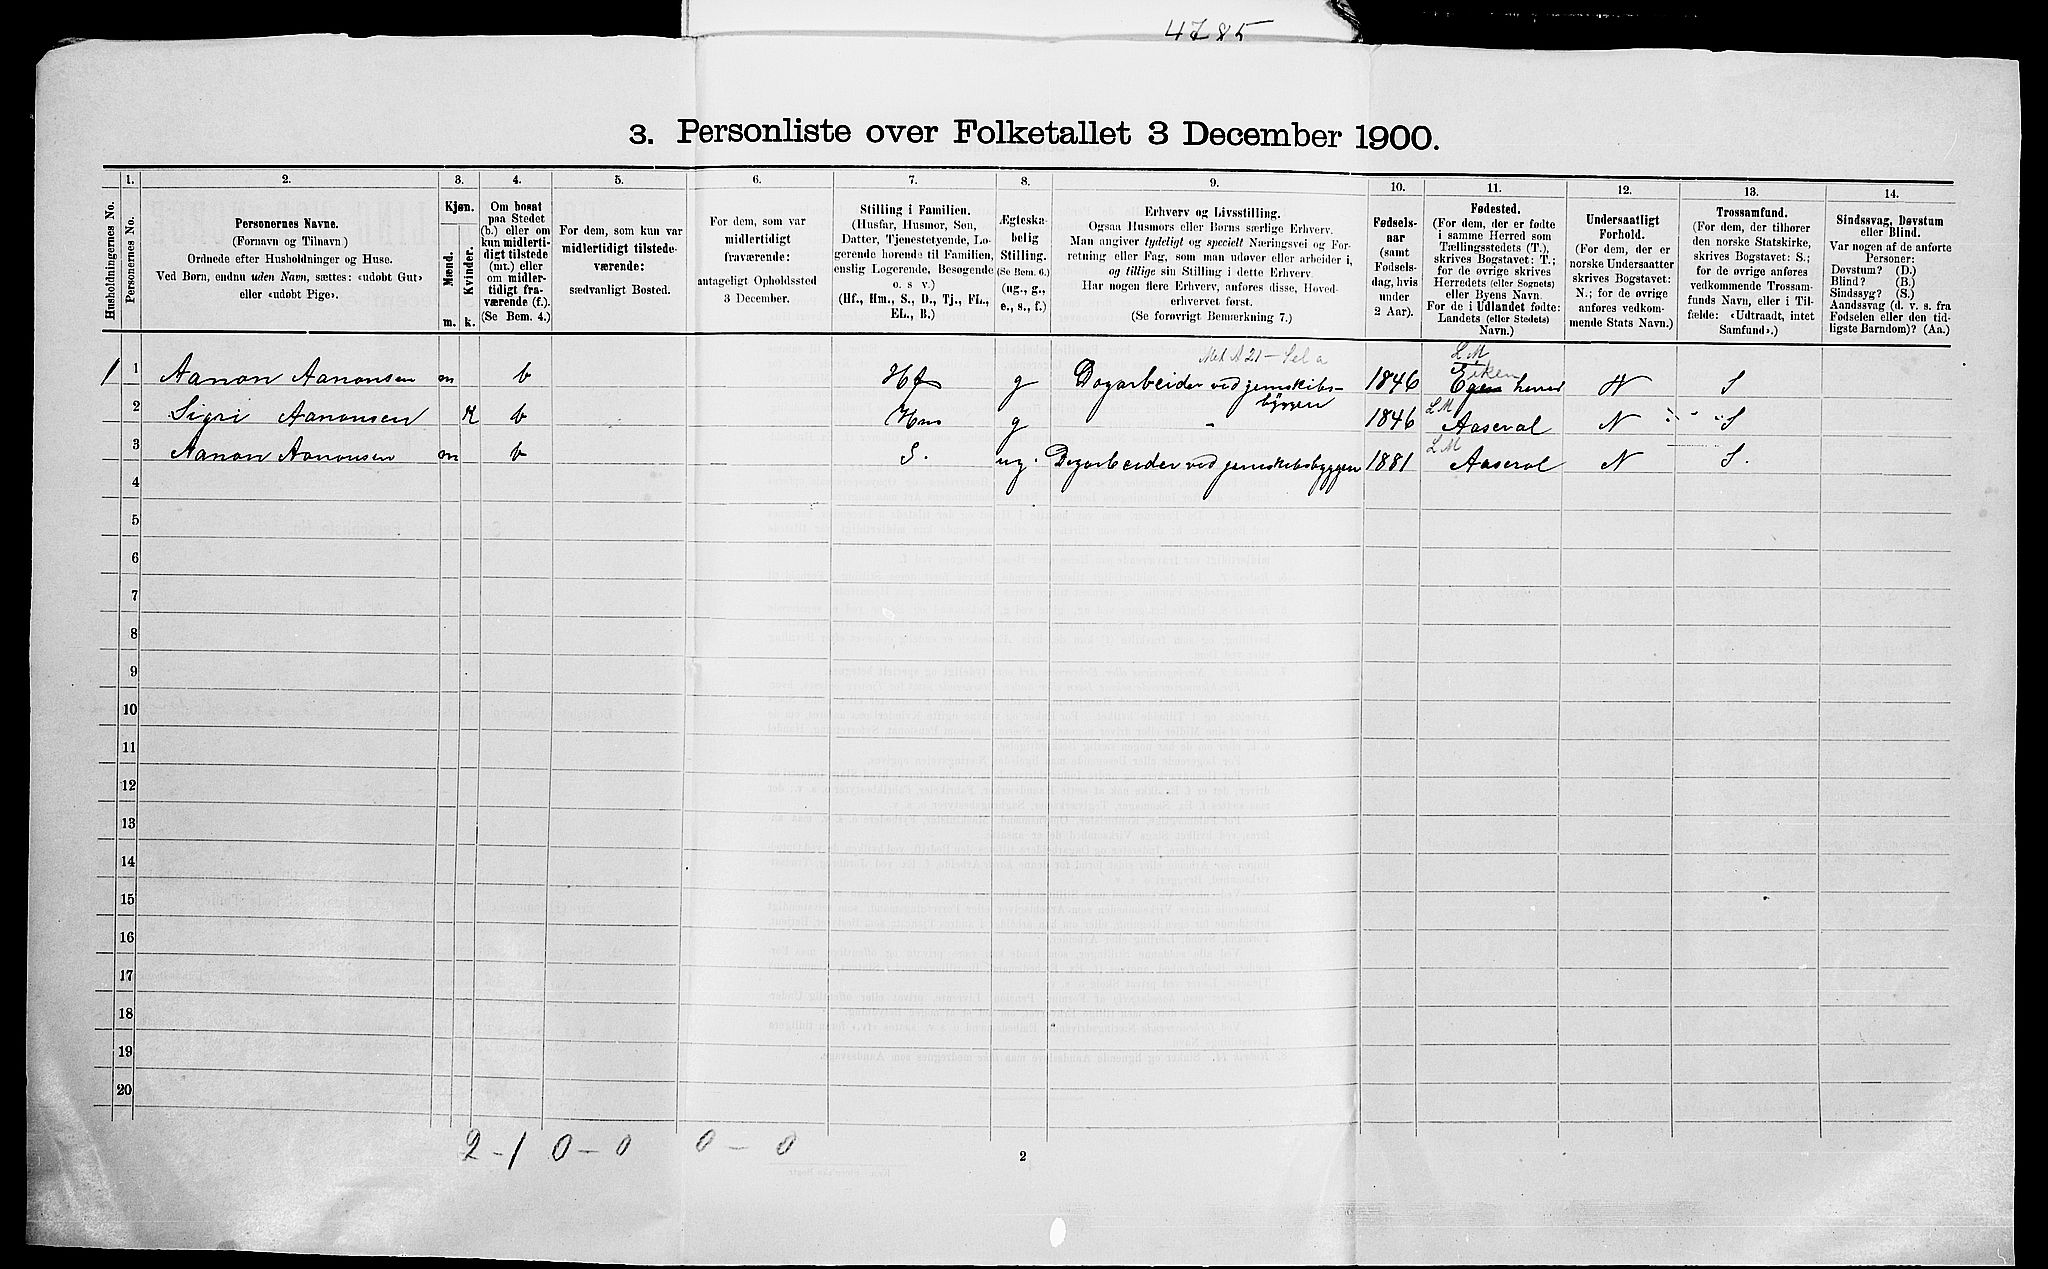 4785
3. Personliste over Folketallet 3 December 1900.
Husholdningernes No.
1.
Personernes No.
2.
Personernes Navne.
(Fornavn og Tilnavn)
Ordnede efter Husholdninger og Huse.
Ved Børn, endnu uden Navn, sættes: «udøbt Gut»
eller «udøbt Pige».
3.
Kjøn.
Mænd.
Kvinder.
m. k.
4.
Om bosat
paa Stedet
(b.) eller om
kun midlerti-
digt tilstede
(mt.) eller
om midler-
tidigt fra-
værende (f.).
(Se Bem. 4.)
5.
For dem, som kun var
midlertidigt tilstede-
værende:
sædvanligt Bosted.
6.
For dem, som var
midlertidigt
fraværende:
antageligt Opholdssted
3 December.
7.
Stilling i Familien.
(Husfar, Husmor, Søn,
Datter, Tjenestetyende, Lo-
gerende hørende til Familien,
enslig Logerende, Besøgende
o. s. v.)
(Hf., Hm., S., D., Tj., FL.,
EL., B.)
8.
Ægteska-
belig
Stilling.
(Se Bem. 6.)
(ug., g.,
e., s., f.)
9.
Erhverv og Livsstilling.
Ogsaa Husmors eller Børns særlige Erhverv.
Man angiver tydeligt og specielt Næringsvei og For-
retning eller Fag, som man udøver eller arbeider i,
og tillige sin Stilling i dette Erhverv.
Har nogen flere Erhverv, anføres disse, Hoved-
erhvervet først.
(Se forøvrigt Bemærkning 7.)
10.
Fødsels-
aar
(samt
Fødsels-
dag, hvis
under
2 Aar).
11.
Fødested.
(For dem, der er fødte
i samme Herred som
Tællingsstedets (T.),
skrives Bogstavet: T.;
for de øvrige skrives
Herredets (eller Sognets)
eller Byens Navn.
For de i Udlandet fødte:
Landets (eller Stedets)
Navn.)
12.
Undersaatligt
Forhold.
(For dem, der er
norske Undersaatter
skrives Bogstavet:
N.; for de øvrige
anføres vedkom-
mende Stats Navn.)
13.
Trossamfund.
(For dem, der tilhører
den norske Statskirke,
skrives Bogstavet: S.;
for de øvrige anføres
vedkommende Trossam-
funds Navn, eller i Til-
fælde: «Udtraadt, intet
Samfund».)
14.
Sindssvag, Døvstum
eller Blind.
Var nogen af de anførte
Personer:
Døvstum? (D.)
Blind? (B.)
Sindssyg? (S.)
Aandssvag (d. v. s. fra
Fødselen eller den tid-
ligste Barndom)? (Aa.)
L M
Eiken
1 1 Aanon Aanonsen m b Hf g Dagarbeider ved jernskibs- 1846 herred N S
byggeri
L M
2 Sigri Aanonsen K b Hm g " 1846 Aaseral N S
L M
3 Aanon Aanonsen m b S. ug. Dagarbeider ved jernskibsbyggeri 1881 Aaseral N S.
4
5
6
7
8
9
10
11
12
13
14
15
16
17
18
19
20
2 - 1 0 - 0 0 - 0
2